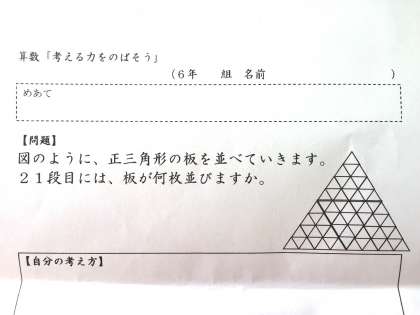 算数「考える力をのばそう」
(６年　　組　名前　　　　　　　　　　)
めあて
【問題】
図のように、正三角形の板を並べていきます。
２１段目には、板が何枚並びますか。
【自分の考え方】